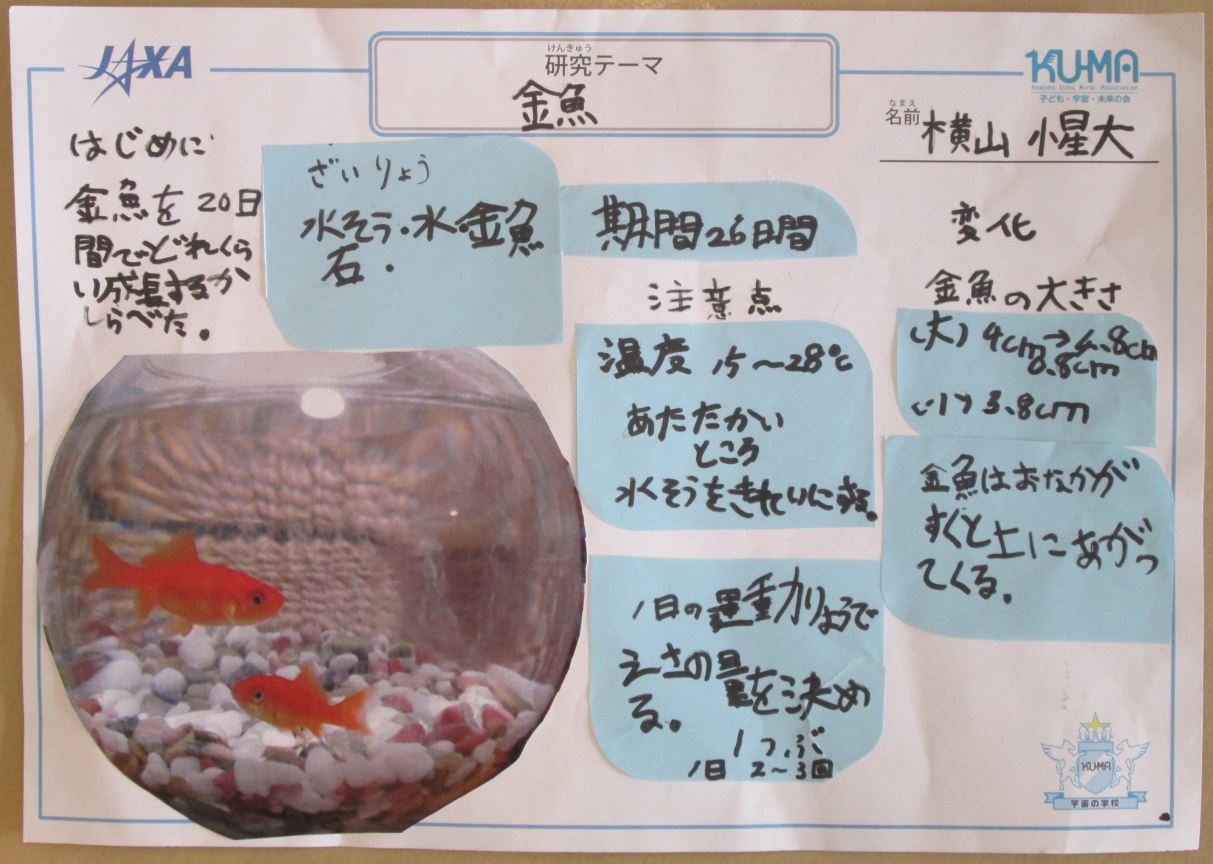 JAXA
けんきゅう
研究テーマ
金魚
KU-MA
Kodomo Uchu Mirai Association
子ども・宇宙・未来の会
なまえ
名前 横山 惺大
はじめに
金魚を20日
間でどれくら
い成長するか
しらべた。
ざいりょう
水そう・水・金魚
石・
期間26日間
注意点
温度 15〜28℃
あたたかい
ところ
水そうをきれいにする。
1日の運動りょうで
えさの量を決め
る。
1つぶ
1日 2〜3回
変化
金魚の大きさ
(大) 4cm→4.8cm
0.8cm
(小) 3.8cm
金魚はおなかが
すくと上にあがっ
てくる。
KU-MA
宇宙の学校